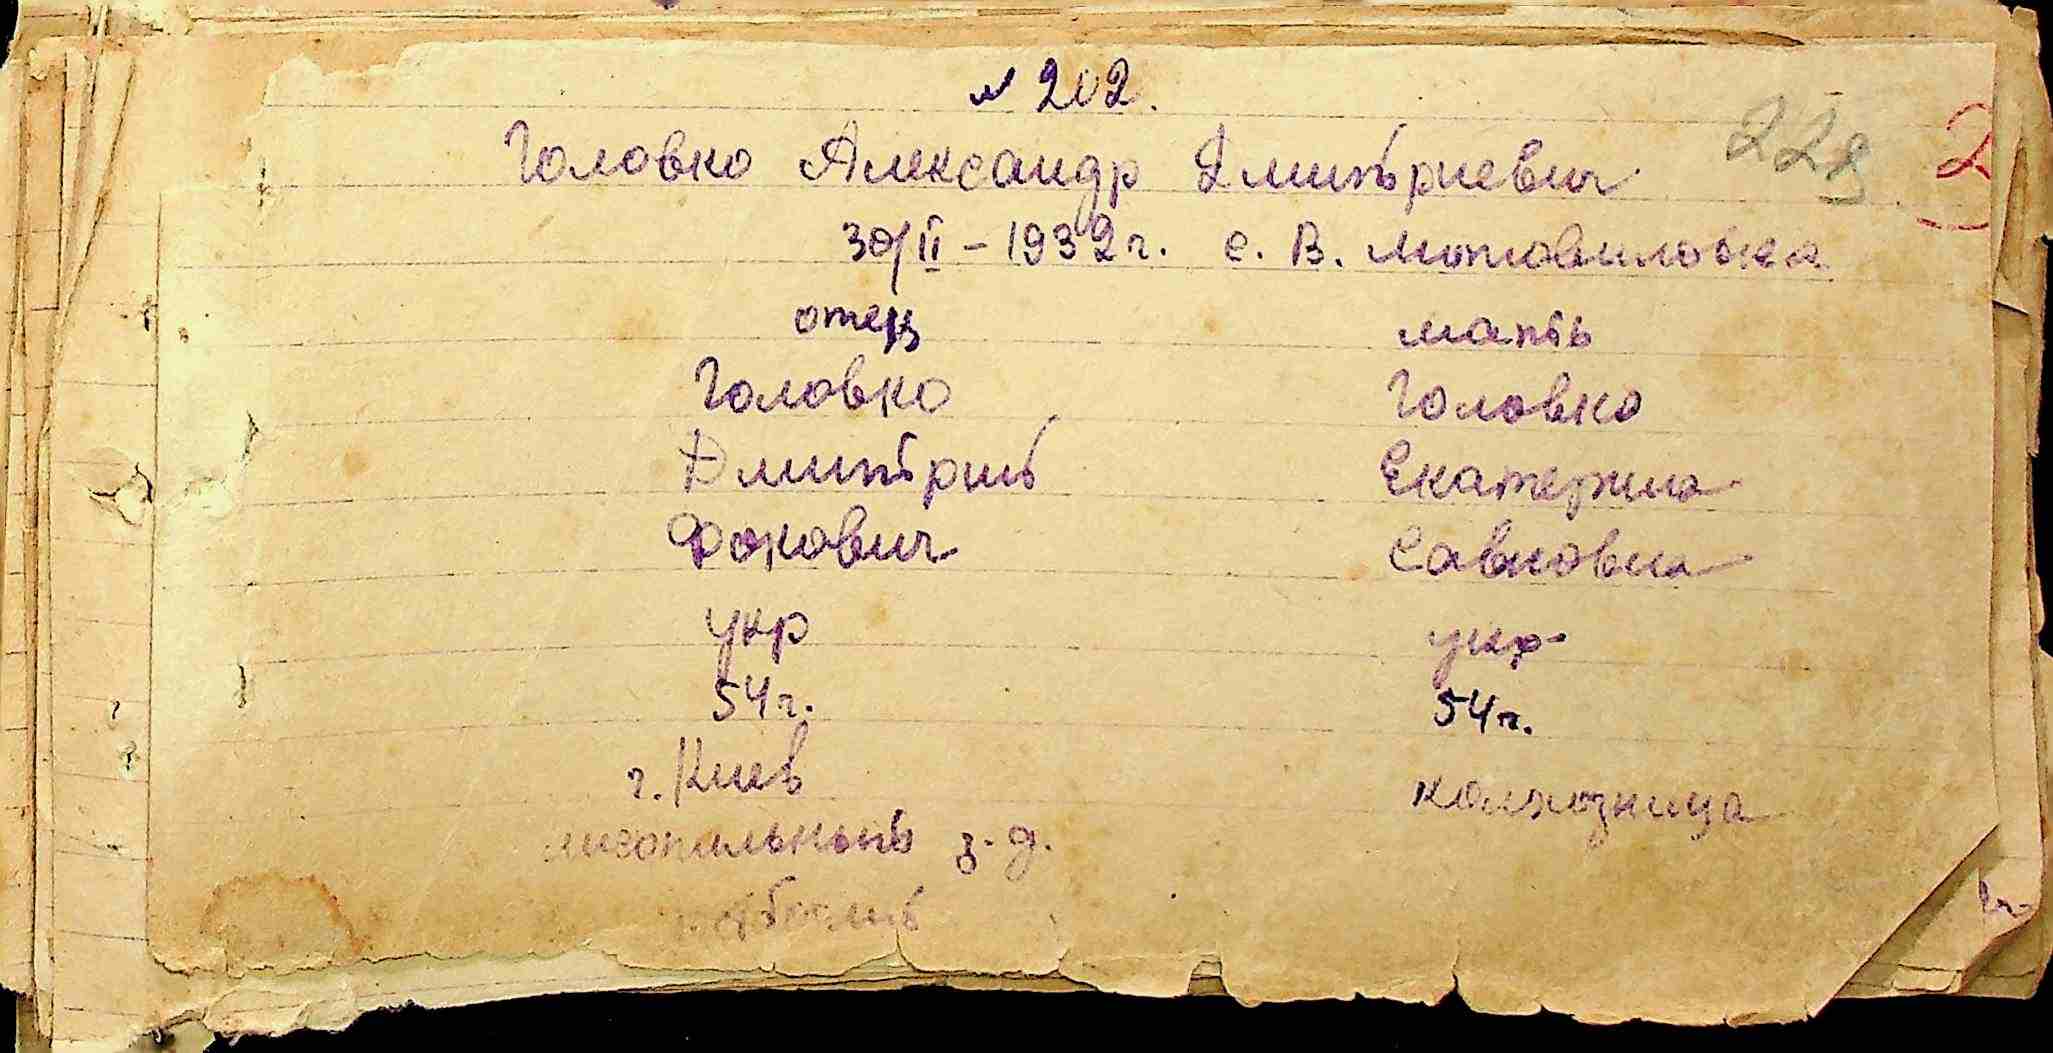 № 202.
Головко Александр Дмитриевич
228 2
30/II - 1932 г. с. В. Мотовиловка
отец мать
Головко Головко
Дмитрий Екатерина
Фокович Савковна
укр укр
54 г. 54 г.
г. Киев колхозница
з-д.